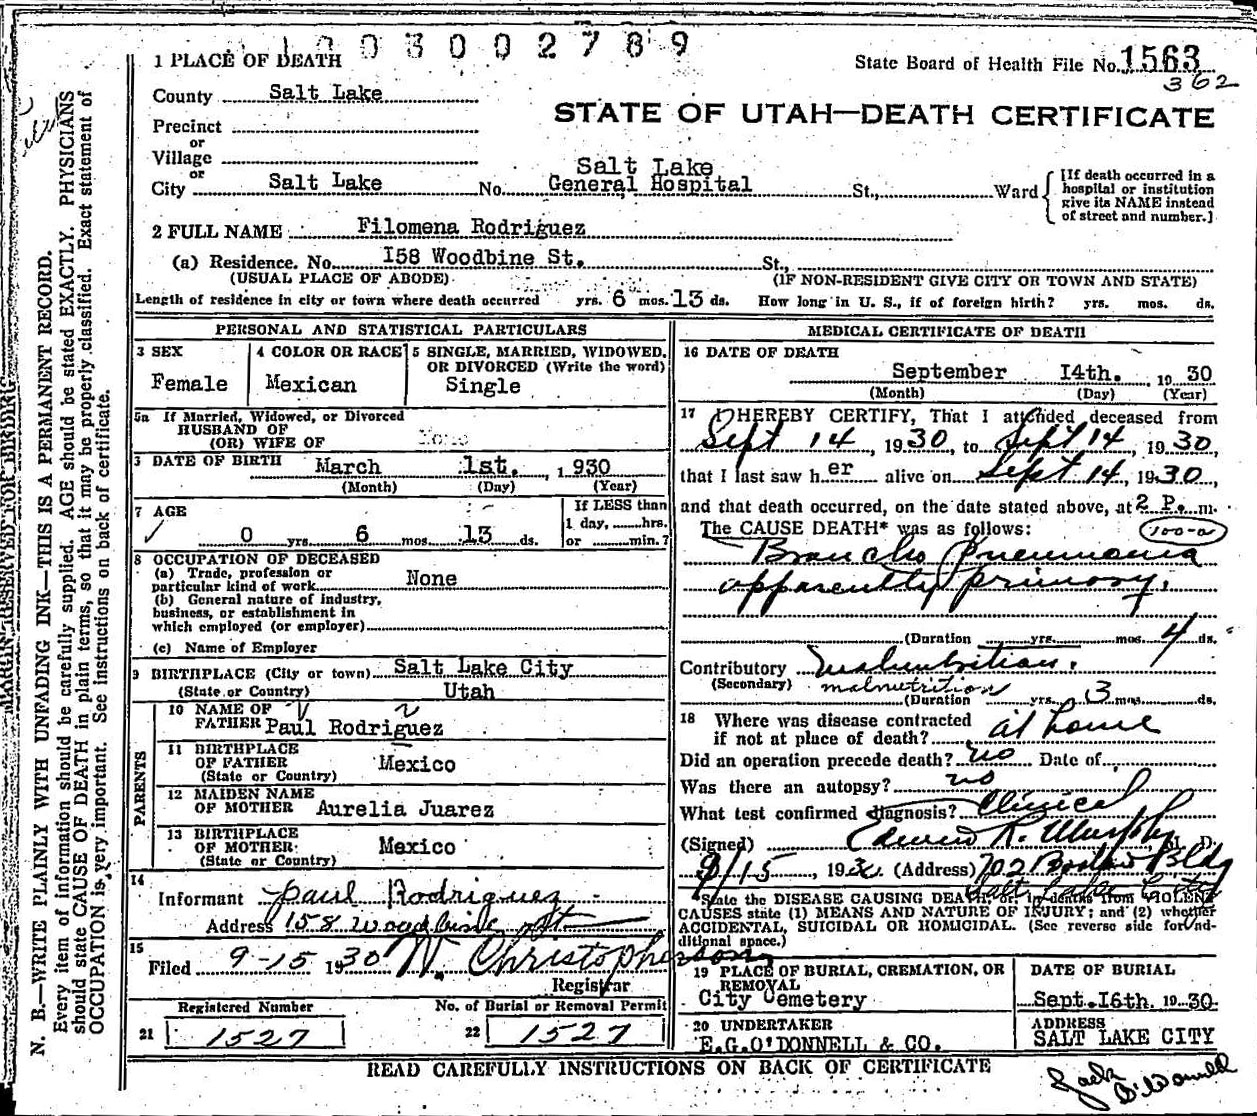 1003002789
1 PLACE OF DEATH
State Board of Health File No. 1563
362
County Salt Lake
STATE OF UTAH—DEATH CERTIFICATE
Precinct
or
Village
or
City Salt Lake No. Salt Lake General Hospital St., Ward
[If death occurred in a hospital or institution give its NAME instead of street and number.]
2 FULL NAME Filomena Rodriguez
(a) Residence. No. I58 Woodbine St. St.,
(USUAL PLACE OF ABODE) (IF NON-RESIDENT GIVE CITY OR TOWN AND STATE)
Length of residence in city or town where death occurred yrs. 6 mos. 13 ds. How long in U. S., if of foreign birth? yrs. mos. ds.
PERSONAL AND STATISTICAL PARTICULARS
3 SEX
Female
4 COLOR OR RACE
Mexican
5 SINGLE, MARRIED, WIDOWED,
OR DIVORCED (Write the word)
Single
5a If Married, Widowed, or Divorced
HUSBAND OF
(OR) WIFE OF None
DATE OF BIRTH March 1st. 1930
(Month) (Day) (Year)
7 AGE
0 yrs. 6 mos. 13 ds.
If LESS than
1 day, hrs.
or min.?
8 OCCUPATION OF DECEASED
(a) Trade, profession or
particular kind of work None
(b) General nature of industry,
business, or establishment in
which employed (or employer)
(c) Name of Employer
9 BIRTHPLACE (City or town) Salt Lake City
(State or Country) Utah
PARENTS
10 NAME OF
FATHER Paul Rodriguez
11 BIRTHPLACE
OF FATHER Mexico
(State or Country)
12 MAIDEN NAME
OF MOTHER Aurelia Juarez
13 BIRTHPLACE
OF MOTHER Mexico
(State or Country)
14
Informant Paul Rodriguez
Address 158 Woodbine St
15
Filed 9-15 1930 N. Christopherson
Registrar
Registered Number No. of Burial or Removal Permit
21 1527 22 1527
MEDICAL CERTIFICATE OF DEATH
16 DATE OF DEATH
September I4th. 1930
(Month) (Day) (Year)
17 I HEREBY CERTIFY, That I attended deceased from
Sept 14, 1930, to Sept 14, 1930,
that I last saw her alive on Sept 14, 1930,
and that death occurred, on the date stated above, at 2 P. m.
The CAUSE DEATH* was as follows: 100-a
Broncho Pneumonia
apparently primary.
(Duration yrs. mos. 4 ds.
Contributory Malnutrition.
(Secondary) malnutrition
(Duration yrs. 3 mos. ds.
18 Where was disease contracted
if not at place of death? at home
Did an operation precede death? no Date of
Was there an autopsy? no
What test confirmed diagnosis? Clinical
(Signed) Edwin R. Murphy M. D.
9/15, 1930 (Address) 702 Boston Bldg
Salt Lake City
*State the DISEASE CAUSING DEATH, or, in deaths from VIOLENT
CAUSES state (1) MEANS AND NATURE OF INJURY; and (2) whether
ACCIDENTAL, SUICIDAL OR HOMICIDAL. (See reverse side for additional space.)
19 PLACE OF BURIAL, CREMATION, OR
REMOVAL
City Cemetery
DATE OF BURIAL
Sept. I6th. 1930
20 UNDERTAKER
E.G.O'DONNELL & CO.
ADDRESS
SALT LAKE CITY
READ CAREFULLY INSTRUCTIONS ON BACK OF CERTIFICATE
Jack O'Donnell
MARGIN RESERVED FOR BINDING
N. B.—WRITE PLAINLY WITH UNFADING INK—THIS IS A PERMANENT RECORD.
Every item of information should be carefully supplied. AGE should be stated EXACTLY. PHYSICIANS
should state CAUSE OF DEATH in plain terms, so that it may be properly classified. Exact statement of
OCCUPATION is very important. See instructions on back of certificate.